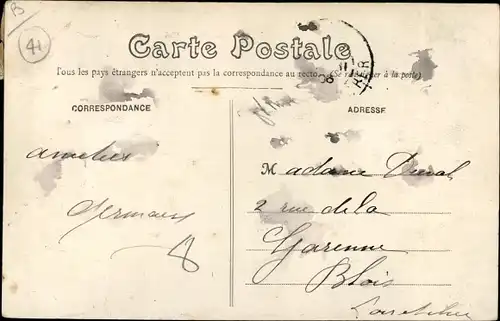 B
41
Carte Postale
Tous les pays étrangers n'acceptent pas la correspondance au recto (Se renseigner à la poste)
CORRESPONDANCE
ADRESSE
amitiés
Germaine
Madame Duval
2 rue de la
Garenne
Blois
Loir et Cher